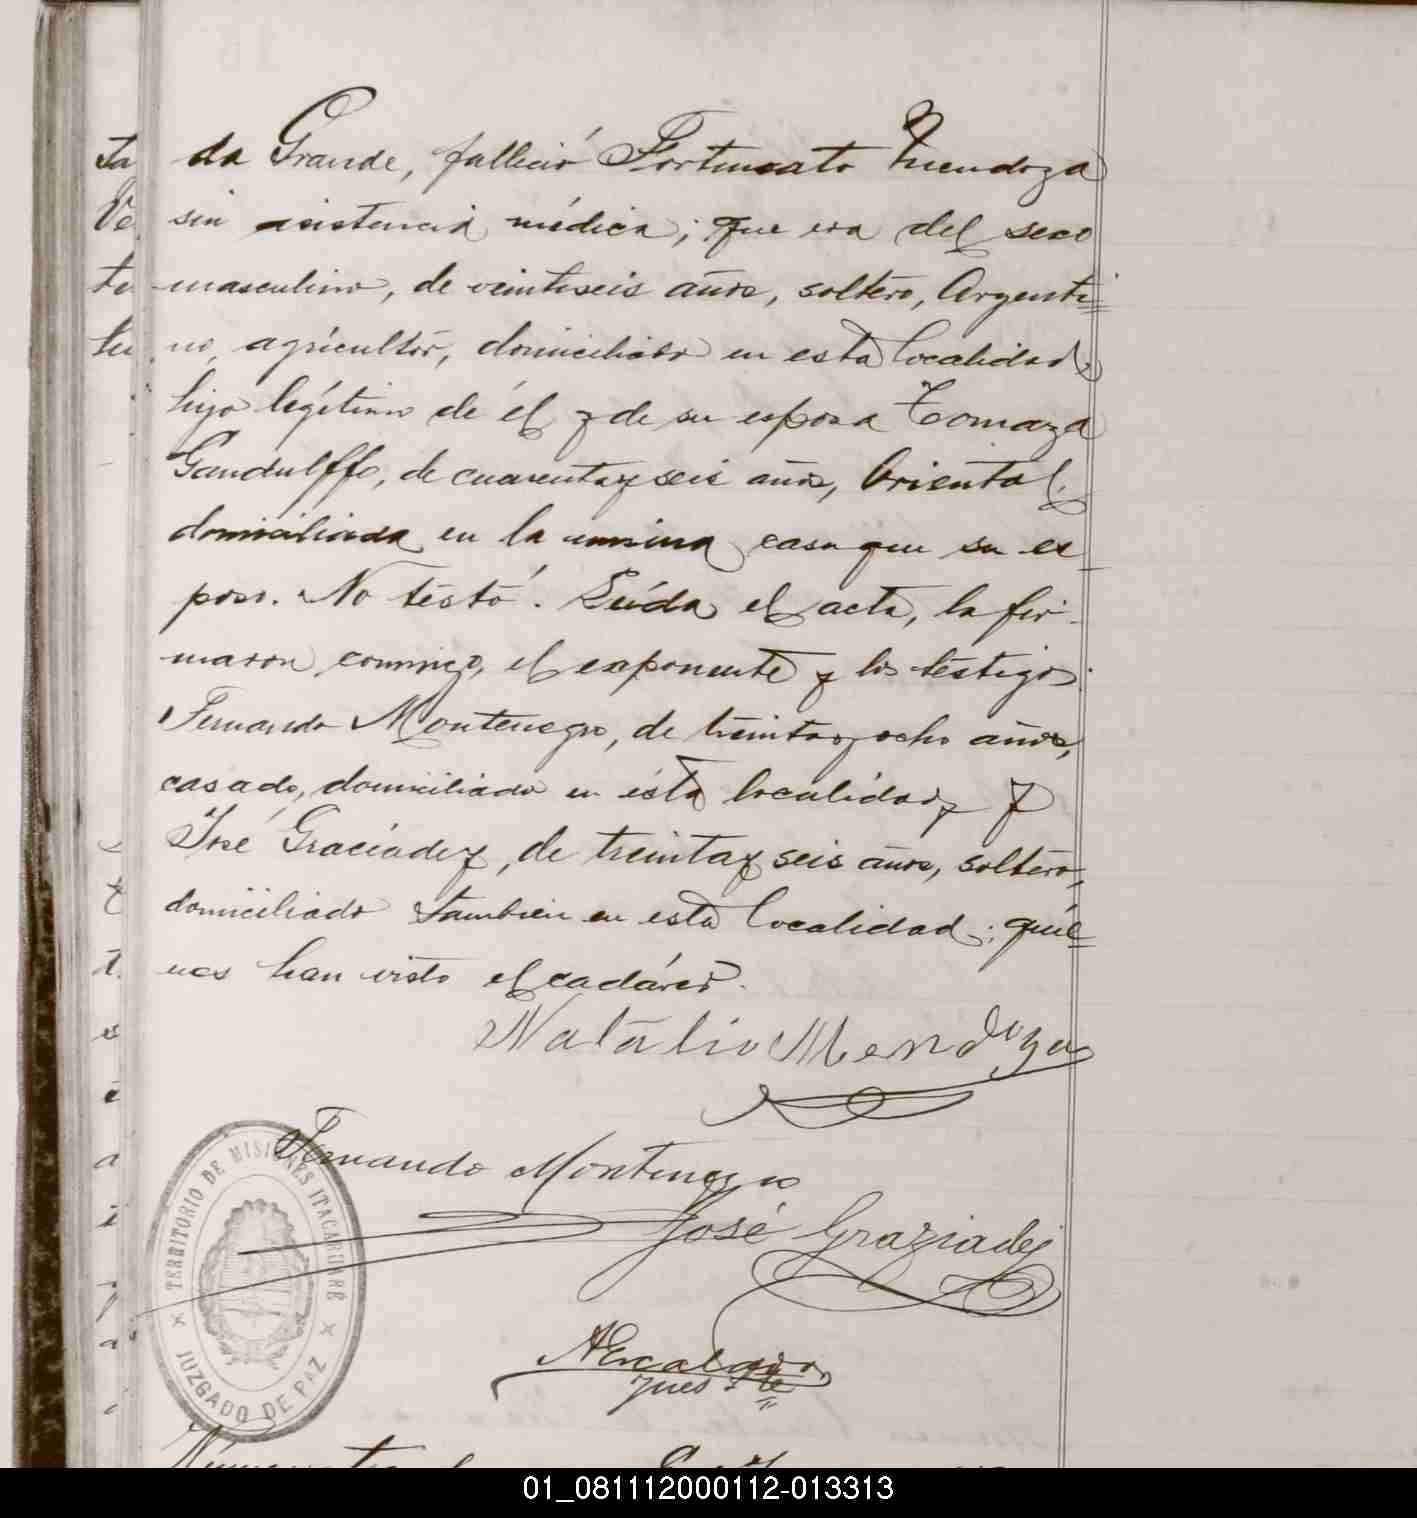 da Grande, falleció Fortunato Mendoza
sin asistencia médica; que era del sexo
masculino, de veintiseis años, soltero, Argenti=
no, agricultor, domiciliado en esta localidad,
hijo legítimo de él y de su esposa Tomaza
Gandulffo, de cuarenta y seis años, Oriental,
domiciliada en la misma casa que su es-
poso. No testó. Leída el acta, la fir-
maron conmigo, el exponente y los testigos
Fernando Montenegro, de treinta y ocho años,
casado, domiciliado en ésta localidad, y
José Graciadez, de treinta y seis años, soltero,
domiciliado tambien en esta localidad; quie=
nes han visto el cadáver.
Natalio Mendoza
Fernando Montenegro
José Graziadej
Juez
TERRITORIO DE MISIONES ITACARUARÉ
JUZGADO DE PAZ
01_081112000112-013313